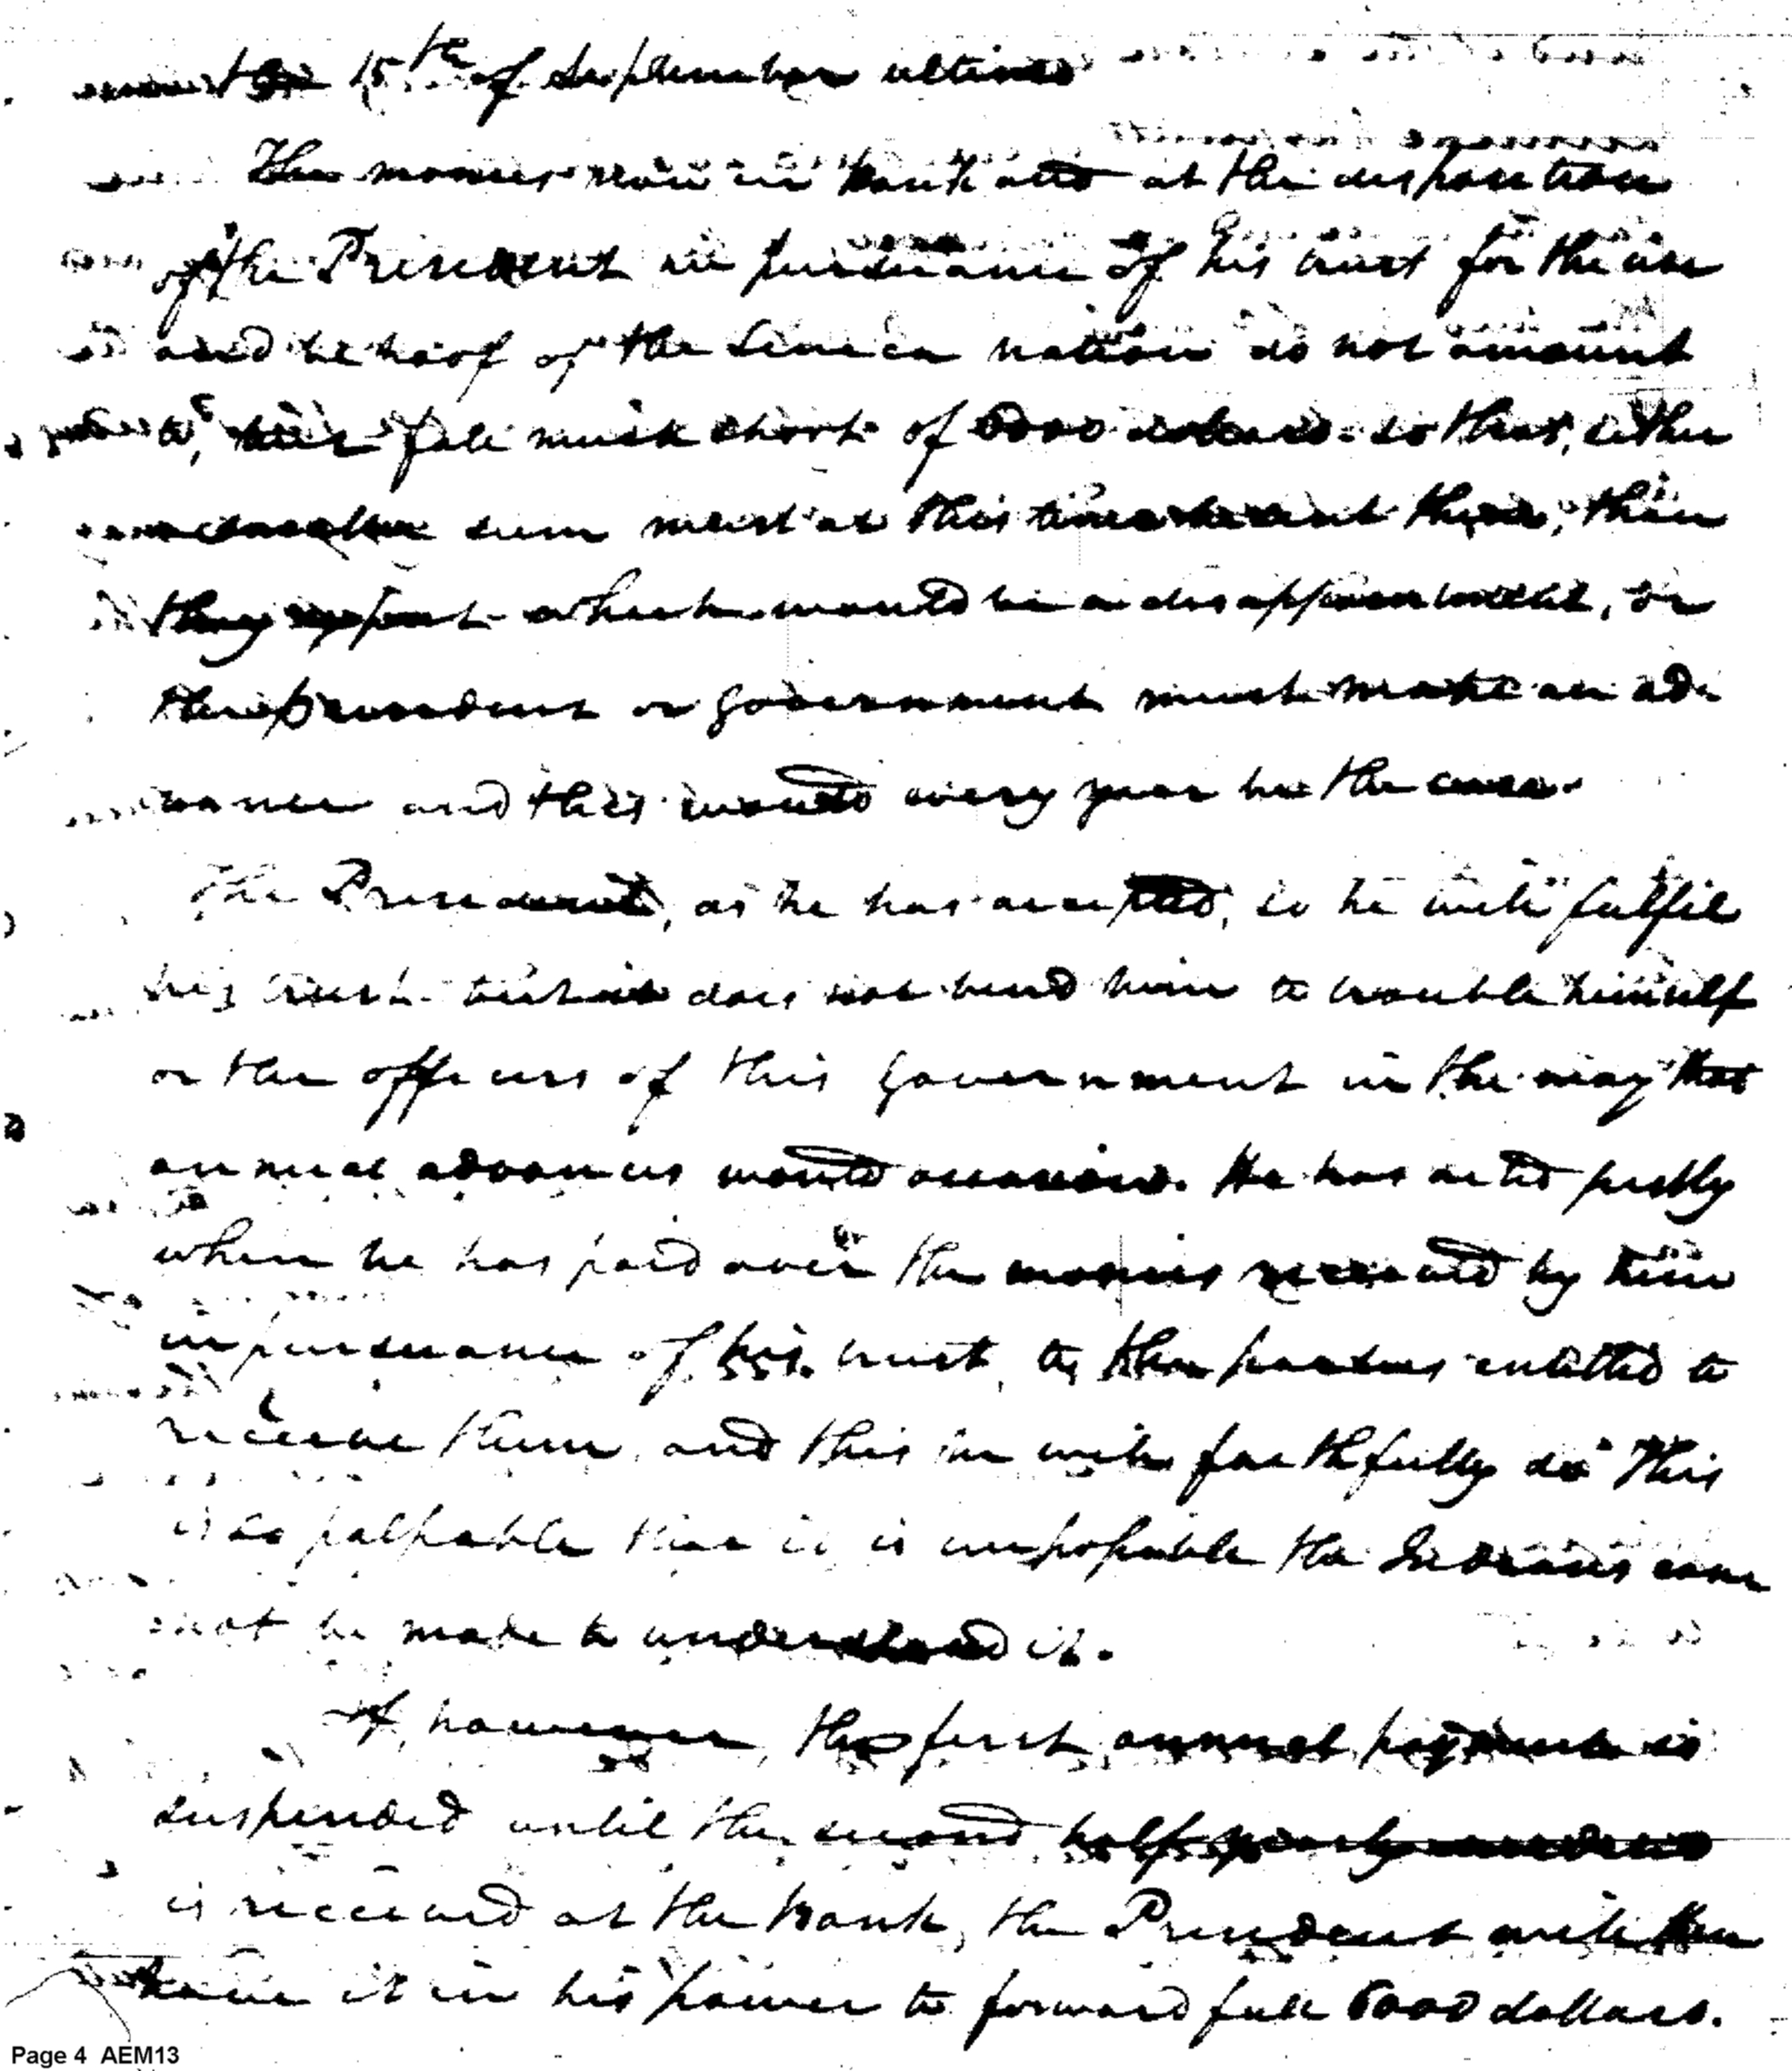 15th of September ultimo
The monies now in bank and at the disposition
of the President in pursuance of his trust for the use
and behoof of the Seneca nation do not amount
to, but fall much short of 6000 dollars. so that, either
a smaller sum must at this time be sent them, than
they expect which would be a disappointment, or
the president or government must make an ad-
vance and this would every year be the case.
The President, as he has accepted, so he will fulfil
his trust. but it does not bind him to trouble himself
or the officers of this Government in the way that
annual advances would occasion. He has acted justly
when he has paid over the monies received by him
in pursuance of his trust, to the parties entitled to
receive them, and this he will faithfully do This
is so palpable that it is impossible the Indians can
not be made to understand it.
If, however, the first annual payment is
suspended until the second half yearly dividend
is received at the bank, the President will then
have it in his power to forward full 6000 dollars.
Page 4 AEM13